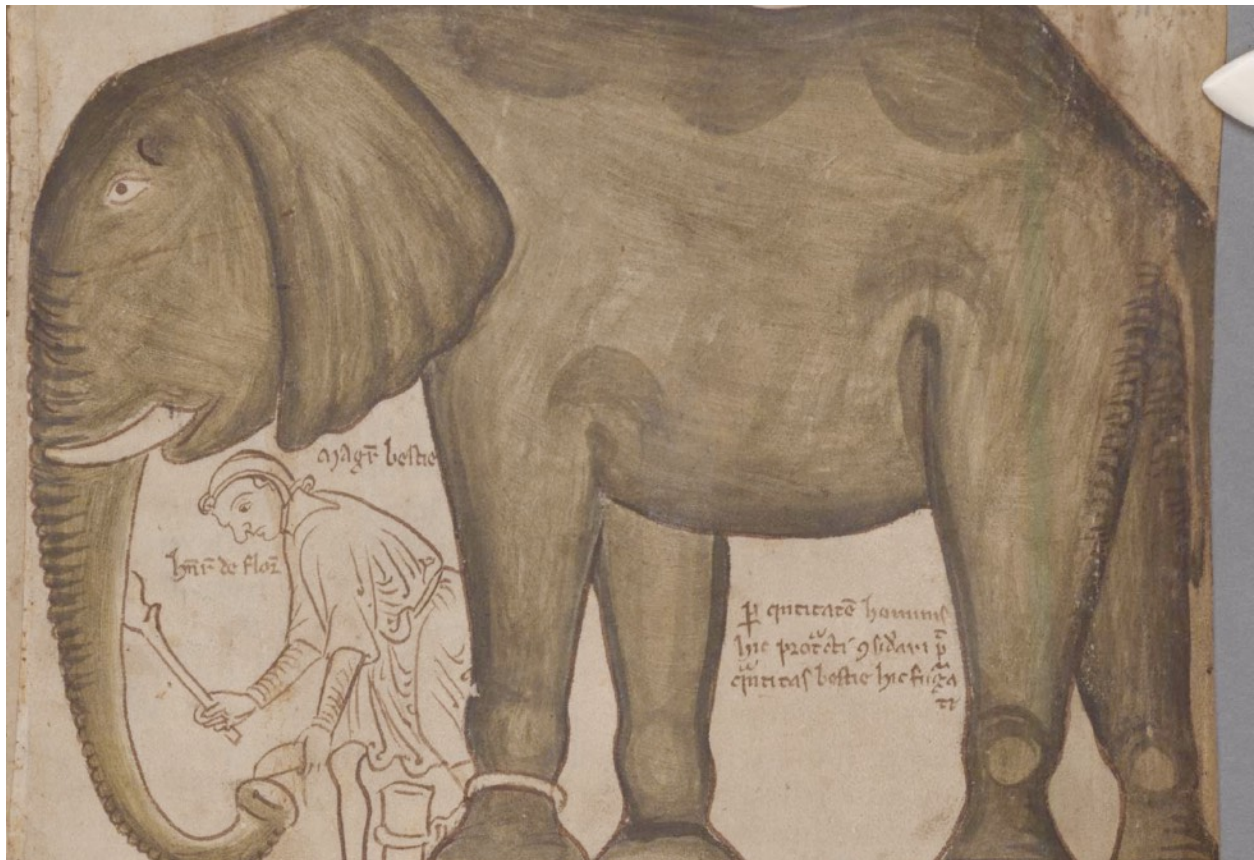 Magr̄ bestie
hn̄r̄ de flor̄
p̱ q̄ntitatē hominis
hic ꝓtͣcti ꝯsid̾ari p̄
q̄ntitas bestie hic figͣa
ti